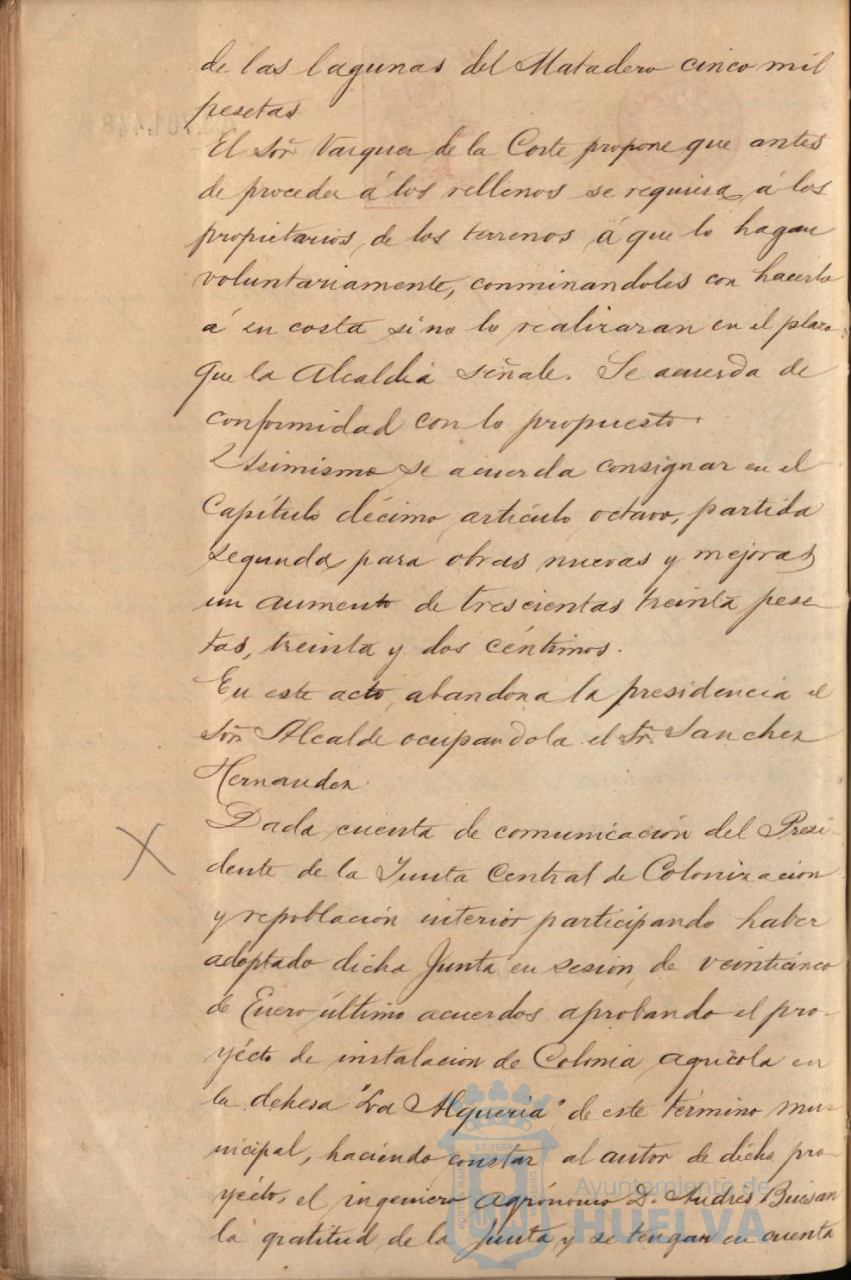 de las lagunas del Matadero cinco mil
pesetas
El Sor Vazquez de la Corte propone que antes
de proceder á los rellenos se requiera á los
propietarios de los terrenos á que lo hagan
voluntariamente, conminandoles con hacerlo
á su costa si no lo realizaran en el plazo
que la Alcaldia señale. Se acuerda de
conformidad con lo propuesto.
Asimismo se acuerda consignar en el
Capítulo décimo, artículo octavo, partida
segunda para obras nuevas y mejoras
un aumento de trescientas treinta pese
tas, treinta y dos céntimos.
En este acto, abandona la presidencia el
Sor Alcalde ocupandola el Sr. Sanchez
Hernandez.
Dada cuenta de comunicación del Presi-
dente de la Junta Central de Colonizacion
y repoblación interior participando haber
adoptado dicha Junta en sesion de veinticinco
de Enero último acuerdos aprobando el pro-
yécto de instalacion de Colonia agrícola en
la dehesa "La Alqueria" de este término mu-
nicipal, haciendo constar al autor de dicho pro-
yécto, el ingeniero agrónomo D. Andrés Buisan
la gratitud de la Junta y se tengan en cuenta
Ayuntamiento de
HUELVA